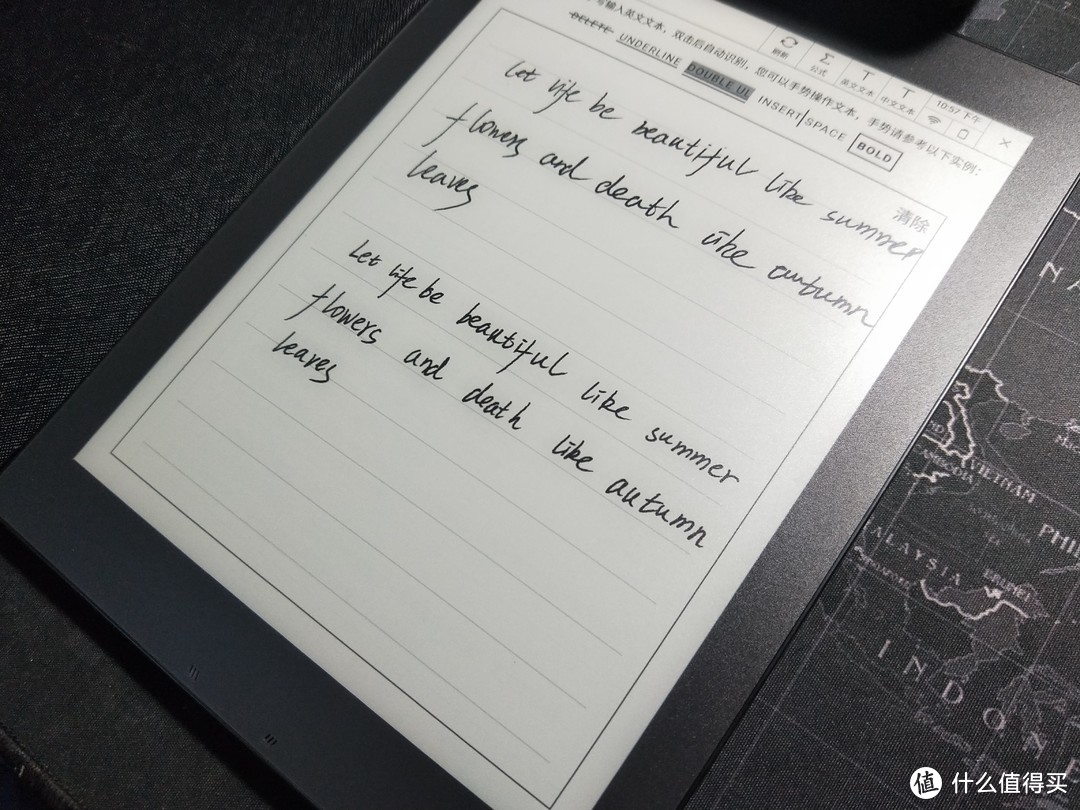 10:57 下午
刷新 公式 英文文本 中文文本
写输入英文文本，双击后自动识别，您可以手势操作文本，手势请参考以下实例：
DELETE UNDERLINE DOUBLE UL INSERT SPACE BOLD
清除
Let life be beautiful like summer
flowers and death like autumn
leaves
Let life be beautiful like summer
flowers and death like autumn
leaves
N A
VIETNAM
CAMBODIA
PHI
ALAYSIA
BRUNEI
SINGAPORE
INDON
值 什么值得买